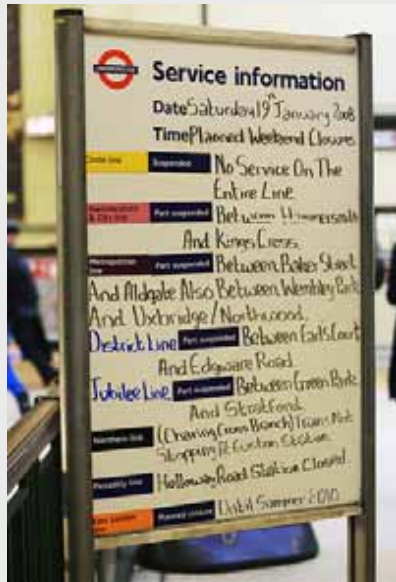 UNDERGROUND
Service information
Date Saturday 19th January 2008
Time Planned Weekend Closures
Circle line Suspended No Service On The
Entire Line
Hammersmith & City line Part suspended Between Hammersmith
And Kings Cross
Metropolitan line Part suspended Between Baker Street
And Aldgate Also Between Wembley Park
And Uxbridge / Northwood.
District Line Part suspended Between Earls Court
And Edgware Road.
Jubilee Line Part suspended Between Green Park
And Stratford.
Northern line (Charing Cross Branch) Trains Not
Stopping At Euston Station.
Piccadilly line Holloway Road Station Closed.
East London line Planned closure Until Summer 2010